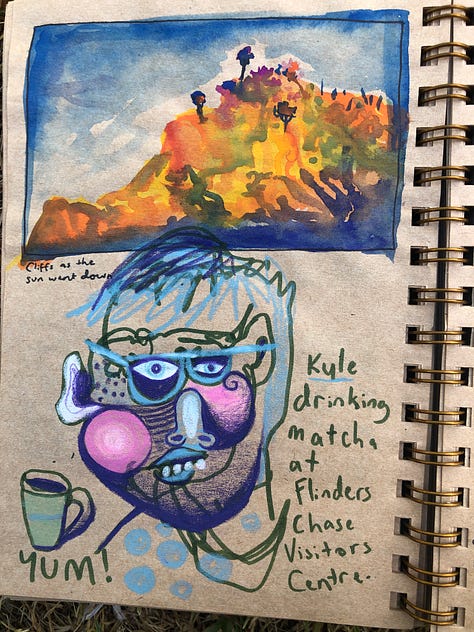 Cliffs as the
sun went down
Kyle
drinking
matcha
at
Flinders
Chase
Visitors
Centre.
YUM!